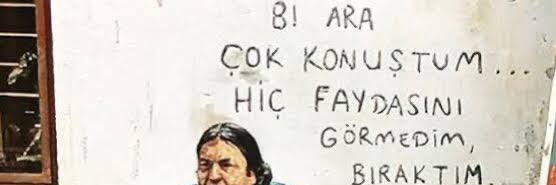 Bİ ARA
ÇOK KONUŞTUM...
HİÇ FAYDASINI
GÖRMEDİM,
BIRAKTIM.